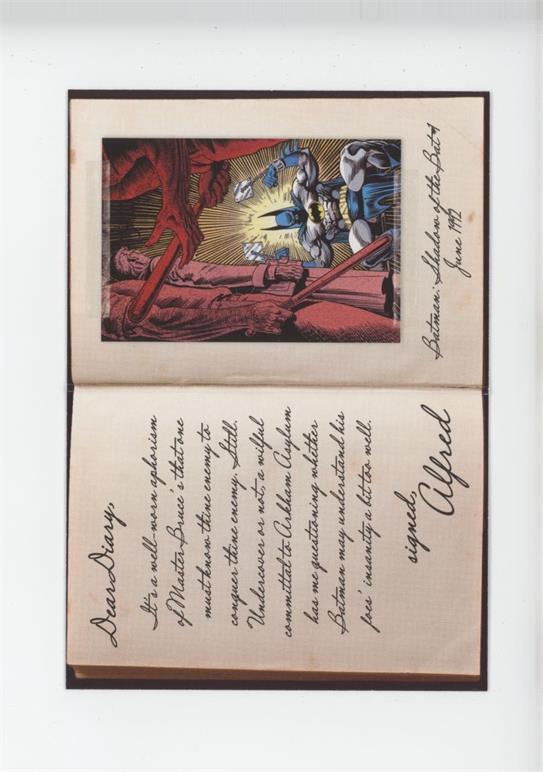 Dear Diary,
It's a well-worn aphorism
of Master Bruce's that one
must know thine enemy to
conquer thine enemy. Still.
Undercover or not, a wilful
committal to Arkham Asylum
has me questioning whether
Batman may understand his
foes' insanity a bit too well.
signed,
Alfred
Batman: Shadow of the Bat #1
June 1992